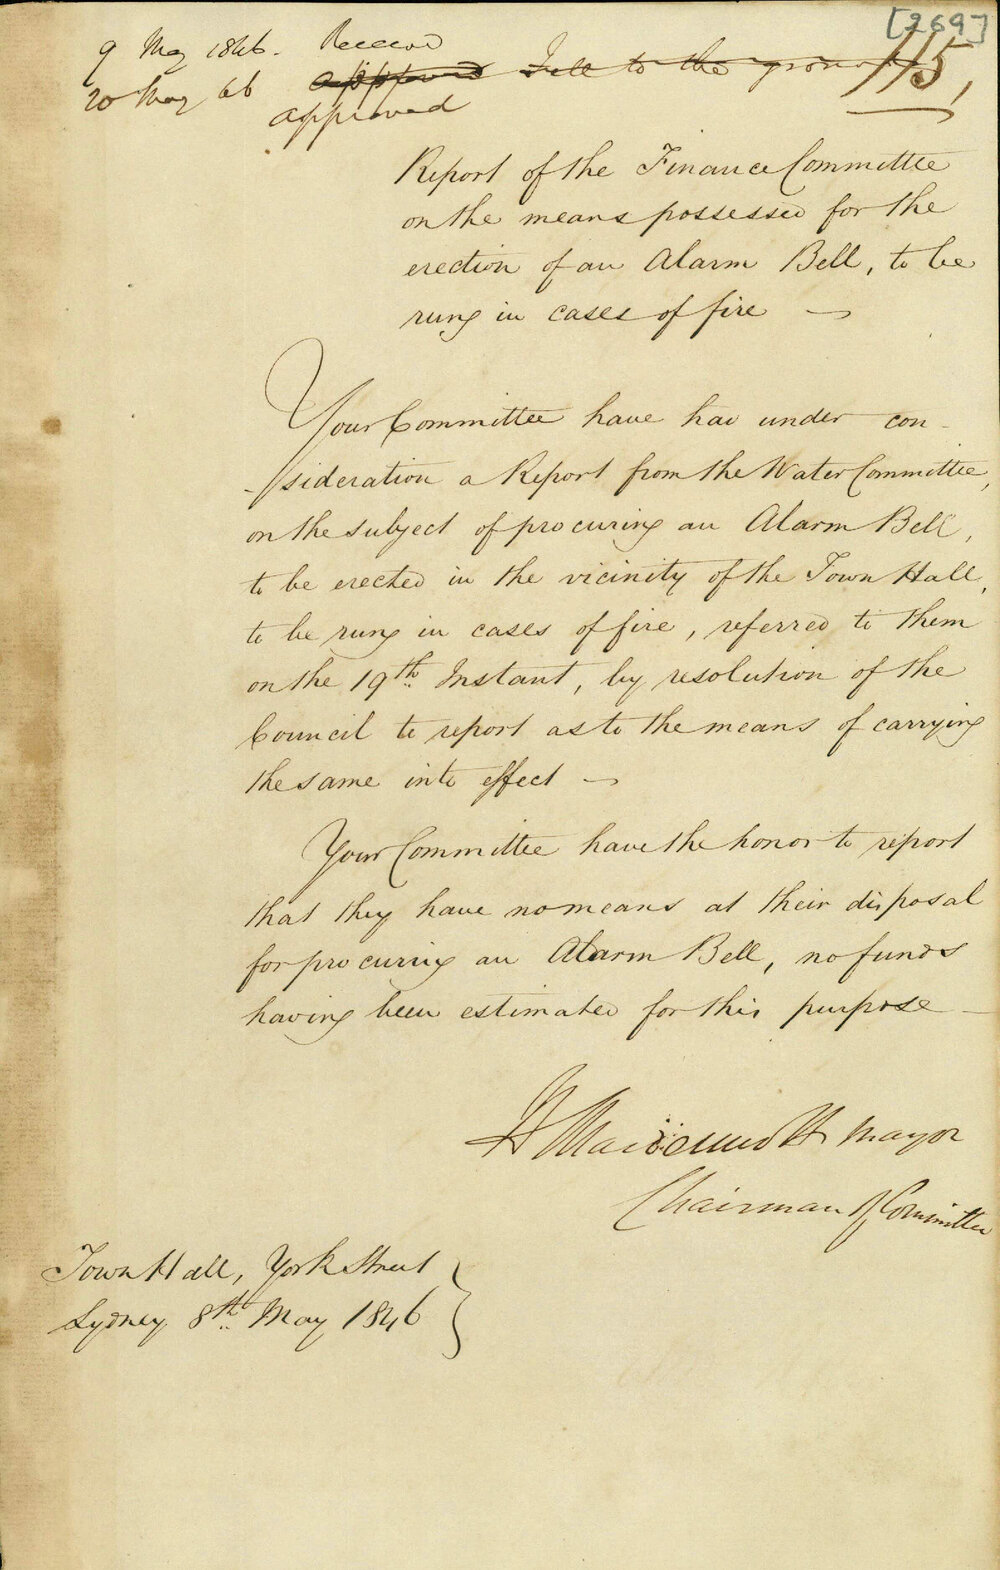 [269]
9 May 1846. Received
115,
20 May 46 approved Fell to the ground
approved
Report of the Finance Committee
on the means possessed for the
erection of an Alarm Bell, to be
rung in cases of fire —
Your Committee have had under con-
-sideration a Report from the Water Committee,
on the subject of procuring an Alarm Bell,
to be erected in the vicinity of the Town Hall,
to be rung in cases of fire, referred to them
on the 19th Instant, by resolution of the
Council to report as to the means of carrying
the same into effect —
Your Committee have the honor to report
that they have no means at their disposal
for procuring an Alarm Bell, no funds
having been estimated for this purpose —
Mayor
Chairman of Committee
Town Hall, York Street
Sydney 8th May 1846